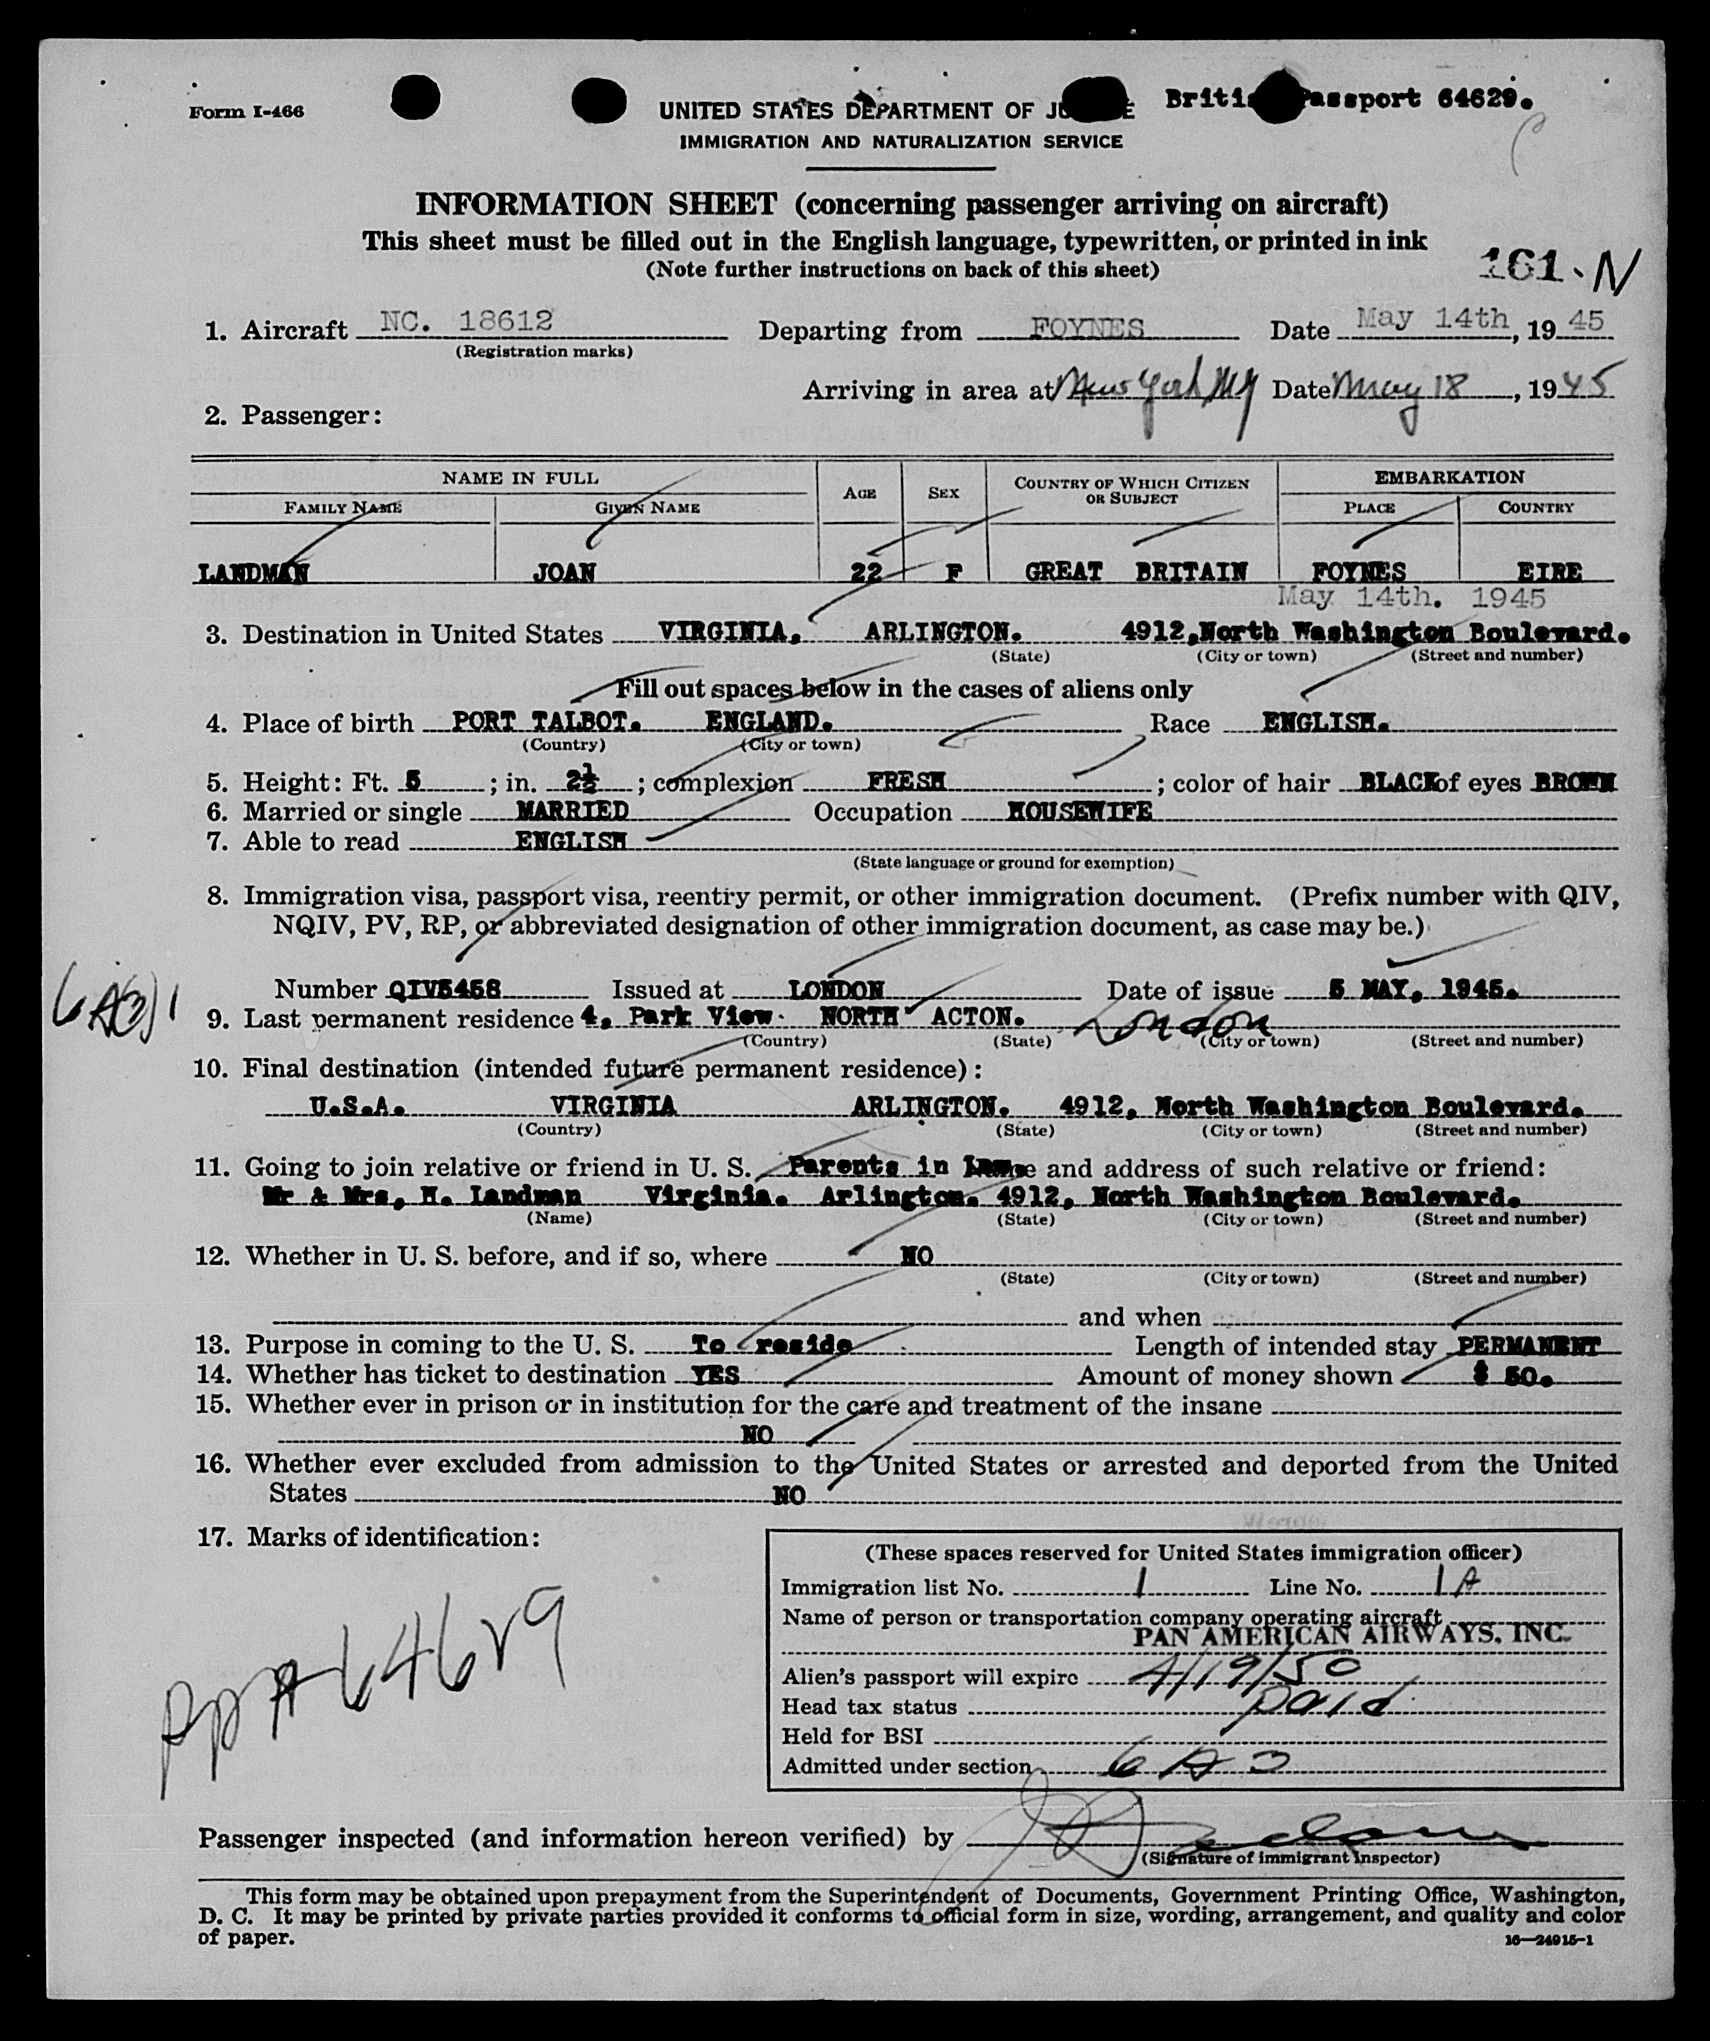 Form I-466
UNITED STATES DEPARTMENT OF
British Passport 64629.
IMMIGRATION AND NATURALIZATION SERVICE
INFORMATION SHEET (concerning passenger arriving on aircraft)
This sheet must be filled out in the English language, typewritten, or printed in ink
(Note further instructions on back of this sheet)
161. N
1. Aircraft NC. 18612 Departing from FOYNES Date May 14th, 1945
(Registration marks)
Arriving in area at New York, NY Date May 18, 1945
2. Passenger:
NAME IN FULL AGE SEX COUNTRY OF WHICH CITIZEN OR SUBJECT EMBARKATION
FAMILY NAME GIVEN NAME PLACE COUNTRY
LANDMAN JOAN 22 F GREAT BRITAIN FOYNES EIRE
May 14th. 1945
3. Destination in United States VIRGINIA, ARLINGTON. 4912, North Washington Boulevard.
(State) (City or town) (Street and number)
Fill out spaces below in the cases of aliens only
4. Place of birth PORT TALBOT. ENGLAND. Race ENGLISH.
(Country) (City or town)
5. Height: Ft. 5 ; in. 2½ ; complexion FRESH ; color of hair BLACK of eyes BROWN
6. Married or single MARRIED Occupation HOUSEWIFE
7. Able to read ENGLISH
(State language or ground for exemption)
8. Immigration visa, passport visa, reentry permit, or other immigration document. (Prefix number with QIV,
NQIV, PV, RP, or abbreviated designation of other immigration document, as case may be.)
6 A(3) 1
Number QIV5458 Issued at LONDON Date of issue 5 MAY, 1945.
9. Last permanent residence 4, Park View. NORTH ACTON. London
(Country) (State) (City or town) (Street and number)
10. Final destination (intended future permanent residence):
U.S.A. VIRGINIA ARLINGTON. 4912, North Washington Boulevard.
(Country) (State) (City or town) (Street and number)
11. Going to join relative or friend in U. S. Parents in Law. and address of such relative or friend:
Mr & Mrs, H. Landman Virginia. Arlington. 4912, North Washington Boulevard.
(Name) (State) (City or town) (Street and number)
12. Whether in U. S. before, and if so, where NO
(State) (City or town) (Street and number)
and when
13. Purpose in coming to the U. S. To reside Length of intended stay PERMANENT
14. Whether has ticket to destination YES Amount of money shown $ 50.
15. Whether ever in prison or in institution for the care and treatment of the insane
NO
16. Whether ever excluded from admission to the United States or arrested and deported from the United
States NO
17. Marks of identification:
pp # 64629
(These spaces reserved for United States immigration officer)
Immigration list No. 1 Line No. 1 A
Name of person or transportation company operating aircraft
PAN AMERICAN AIRWAYS, INC.
Alien's passport will expire 4/19/50
Head tax status paid
Held for BSI
Admitted under section 6 A 3
Passenger inspected (and information hereon verified) by
(Signature of Immigrant Inspector)
This form may be obtained upon prepayment from the Superintendent of Documents, Government Printing Office, Washington,
D. C. It may be printed by private parties provided it conforms to official form in size, wording, arrangement, and quality and color
of paper.
16—24915-1